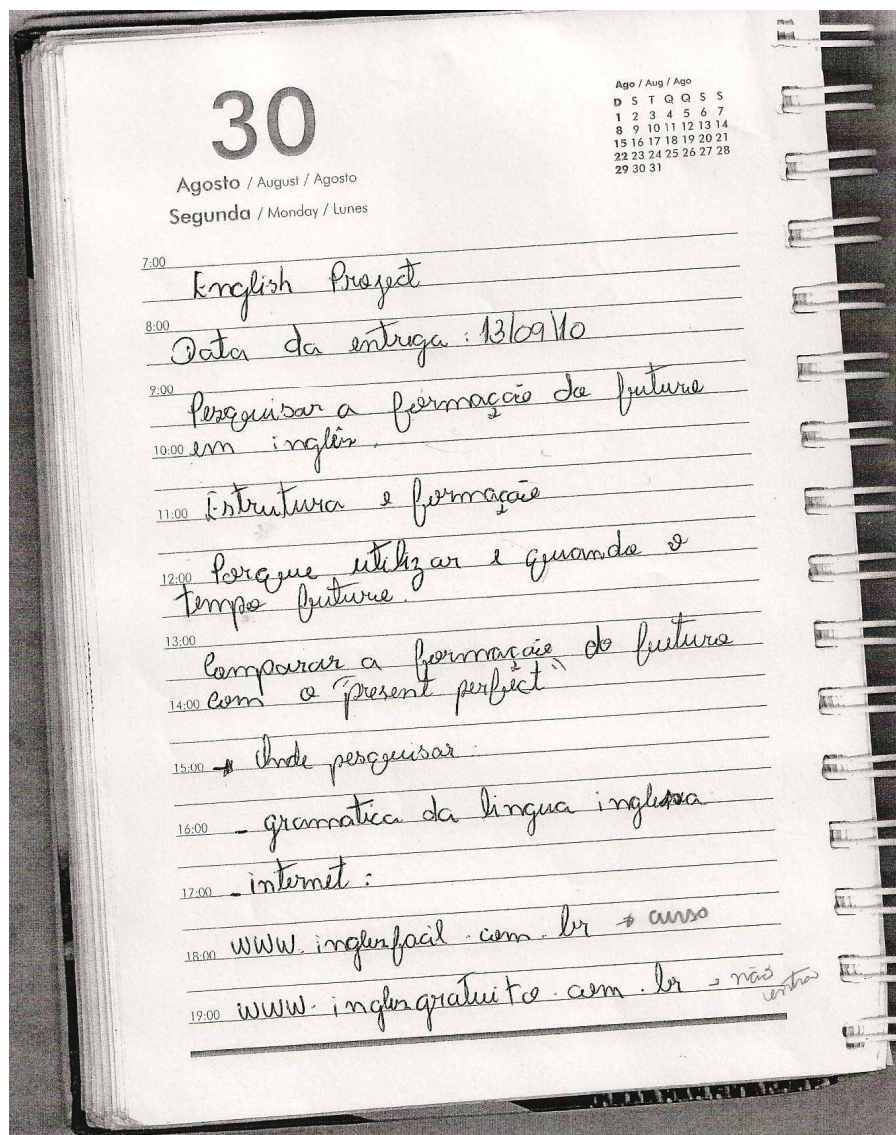 30
Agosto / August / Agosto
Segunda / Monday / Lunes
Ago / Aug / Ago
D S T Q Q S S
1 2 3 4 5 6 7
8 9 10 11 12 13 14
15 16 17 18 19 20 21
22 23 24 25 26 27 28
29 30 31
7:00
English Project
8:00
Data da entrega : 13/09/10
9:00
Pesquisar a formação do futuro
10:00 em inglês.
11:00 Estrutura e formação
12:00 Porque utilizar e quando o
tempo futuro.
13:00
Comparar a formação do futuro
14:00 com o "present perfect"
15:00 → Onde pesquisar:
16:00 - gramatica da lingua inglesa
17:00 - internet :
18:00 www.inglesfacil.com.br → curso
19:00 www.inglesgratuito.com.br → não
entra